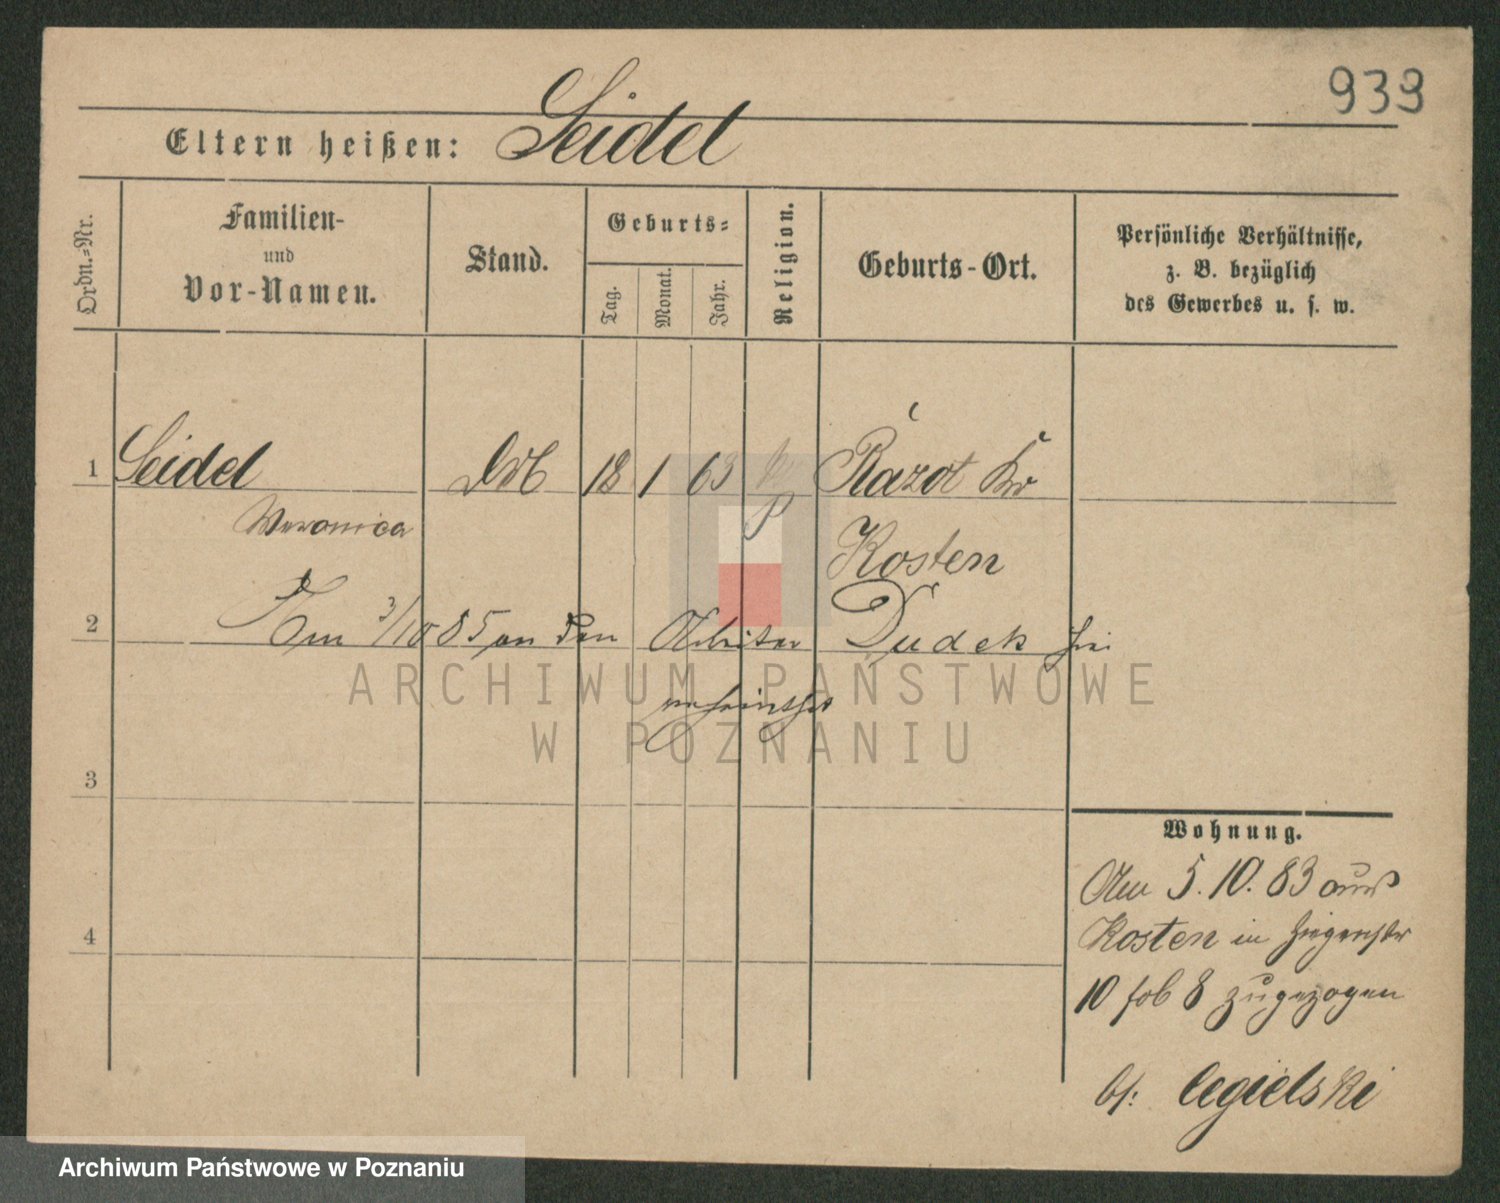 939
Eltern heißen: Seidel
Ordn.=Nr.
Familien-
und
Vor-Namen.
Stand.
Geburts=
Tag.
Monat.
Jahr.
Religion.
Geburts-Ort.
Persönliche Verhältnisse,
z. B. bezüglich
des Gewerbes u. s. w.
1 Seidel 18 1 63 Razot Kr
Weronica P Kosten
2 Am 3/10 85 an den Arbeiter Dudek hier
verheirathet
3
4
Wohnung.
Am 5. 10. 83 aus
Kosten in
10 8 zugezogen
bei: Cegielski
ARCHIWUM PAŃSTWOWE
W POZNANIU
Archiwum Państwowe w Poznaniu